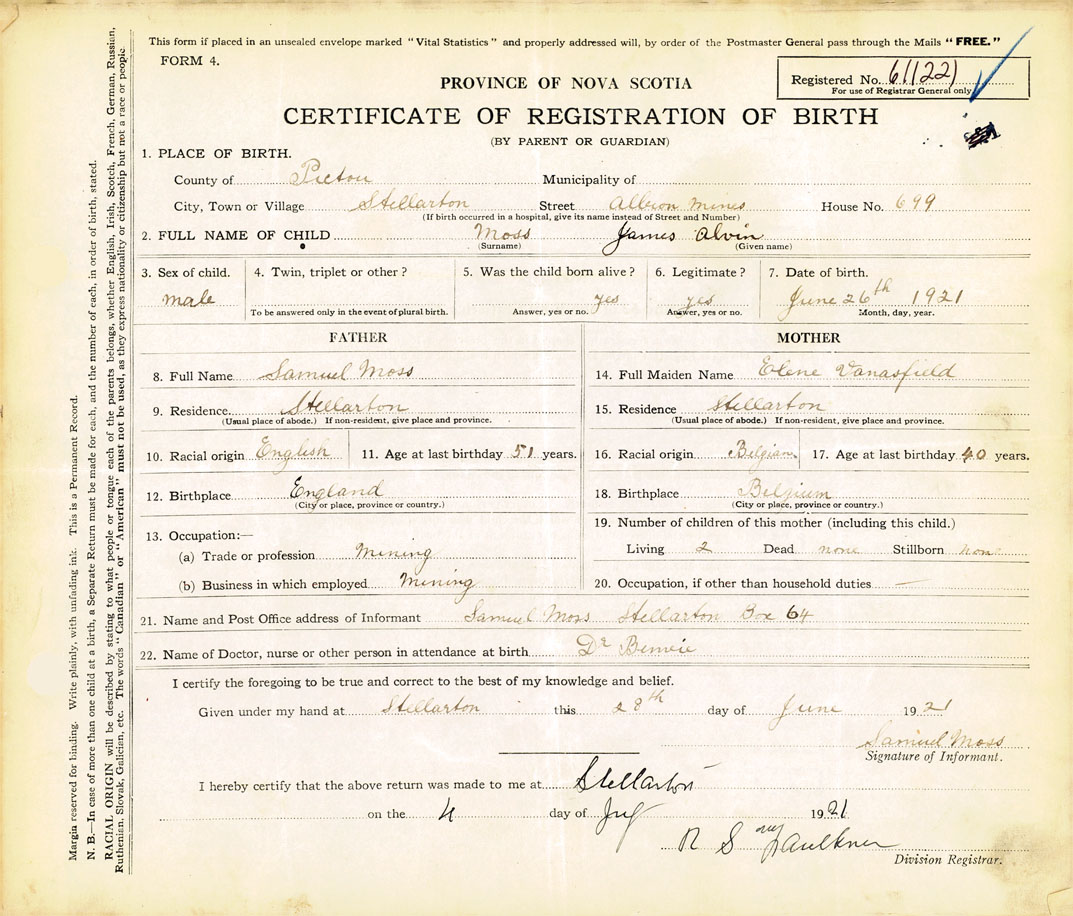 This form if placed in an unsealed envelope marked "Vital Statistics" and properly addressed will, by order of the Postmaster General pass through the Mails "FREE."
FORM 4.
Registered No. 61122)
For use of Registrar General only
PROVINCE OF NOVA SCOTIA
CERTIFICATE OF REGISTRATION OF BIRTH
(BY PARENT OR GUARDIAN)
1. PLACE OF BIRTH.
County of Pictou Municipality of
City, Town or Village Stellarton Street Albion Mines House No. 699
(If birth occurred in a hospital, give its name instead of Street and Number)
2. FULL NAME OF CHILD Moss James Alvin
(Surname) (Given name)
3. Sex of child. 4. Twin, triplet or other? 5. Was the child born alive? 6. Legitimate? 7. Date of birth.
male yes yes June 26th 1921
To be answered only in the event of plural birth. Answer, yes or no. Answer, yes or no. Month, day, year.
FATHER MOTHER
8. Full Name Samuel Moss 14. Full Maiden Name Elene Vanasfield
9. Residence Stellarton 15. Residence Stellarton
(Usual place of abode.) If non-resident, give place and province. (Usual place of abode.) If non-resident, give place and province.
10. Racial origin English 11. Age at last birthday 51 years. 16. Racial origin Belgian 17. Age at last birthday 40 years.
12. Birthplace England 18. Birthplace Belgium
(City or place, province or country.) (City or place, province or country.)
13. Occupation:— 19. Number of children of this mother (including this child.)
(a) Trade or profession Mining Living 2 Dead none Stillborn none
(b) Business in which employed Mining 20. Occupation, if other than household duties —
21. Name and Post Office address of Informant Samuel Moss Stellarton Box 64
22. Name of Doctor, nurse or other person in attendance at birth Dr
I certify the foregoing to be true and correct to the best of my knowledge and belief.
Given under my hand at Stellarton this 28th day of June 1921
Samuel Moss
Signature of Informant.
I hereby certify that the above return was made to me at Stellarton
on the 4 day of July 1921
R S Faulkner
Division Registrar.
Margin reserved for binding. Write plainly, with unfading ink. This is a Permanent Record.
N. B.—In case of more than one child at a birth, a Separate Return must be made for each, and the number of each, in order of birth, stated.
RACIAL ORIGIN will be described by stating to what people or tongue each of the parents belongs, whether English, Irish, Scotch, French, German, Russian,
Ruthenian, Slovak, Galician, etc. The words "Canadian" or "American" must not be used, as they express nationality or citizenship but not a race or people.